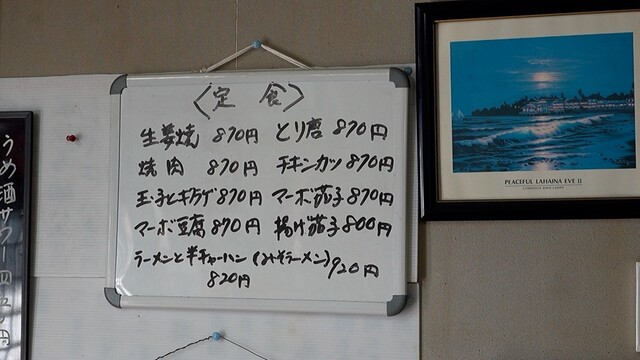 〈定食〉
生姜焼 870円 とり唐 870円
焼肉 870円 チキンカツ 870円
玉子とキクラゲ 870円 マーボ茄子 870円
マーボ豆腐 870円 揚げ茄子 800円
ラーメンと半チャーハン (みそラーメン) 920円
820円
うめ酒サワー
PEACEFUL LAHAINA EVE II